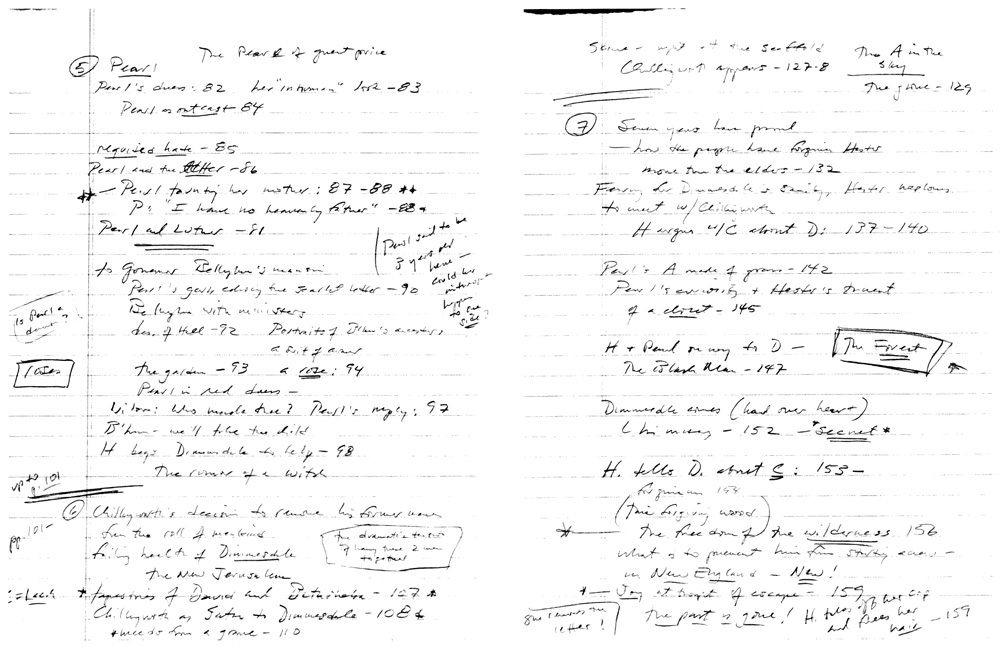 The Pearl of great price
5 Pearl
Pearl's dress: 82 her "inhuman" look - 83
Pearl as outcast - 84
requited hate - 85
Pearl and the letter - 86
** - Pearl taunting her mother: 87-88 **
P: "I have no heavenly father" - 88 *
Pearl and Luther - 81
Pearl said to be
3 years old
here -
could her
happen
to be
size?
to Governor Bellingham's mansion
Pearl's garb echoing the scarlet letter - 90
Is Pearl a
demon?
Bellingham with ministers
des. of Hall - 92 Portraits of B'ham's ancestors,
a suit of armor
roses
the garden - 93 a rose: 94
Pearl in red dress -
Wilson: Who made thee? Pearl's reply: 97
B'ham - we'll take the child
H begs Dimmesdale to help - 98
The rumor of a witch
up to
p. 101
pp. 101-
6 Chillingworth's decision to remove his former name
from the roll of mankind
failing health of Dimmesdale
the dramatic
of having these 2 men
together
the New Jerusalem
C = Leech * tapestries of David and Bathsheba - 107 *
Chillingworth as Satan to Dimmesdale - 108 *
* weeds from a grave - 110
- night at the scaffold
Chillingworth appears - 127-8
The A in the
sky
The glove - 129
7 Seven years have passed
- how the people have forgiven Hester
more than the elders - 132
Fearing for Dimmesdale's sanity, Hester
to meet w/Chillingworth
H argues w/C about D: 137-140
Pearl's A made of grass - 142
Pearl's curiosity + Hester's threat
of a closet - 145
H + Pearl on way to D -
The Black Man - 147
The Forest
Dimmesdale comes (hand over heart)
his misery - 152 - "secret" *
H. tells D. about C: 153 -
forgiveness 154
(The forgiving woods)
* The freedom of the wilderness 156
What is to prevent him from starting anew -
in New England - New!
* - Joy at thought of escape - 159
she removes the
letter!
The past is gone! H. takes off her cap
and frees her
hair - 159